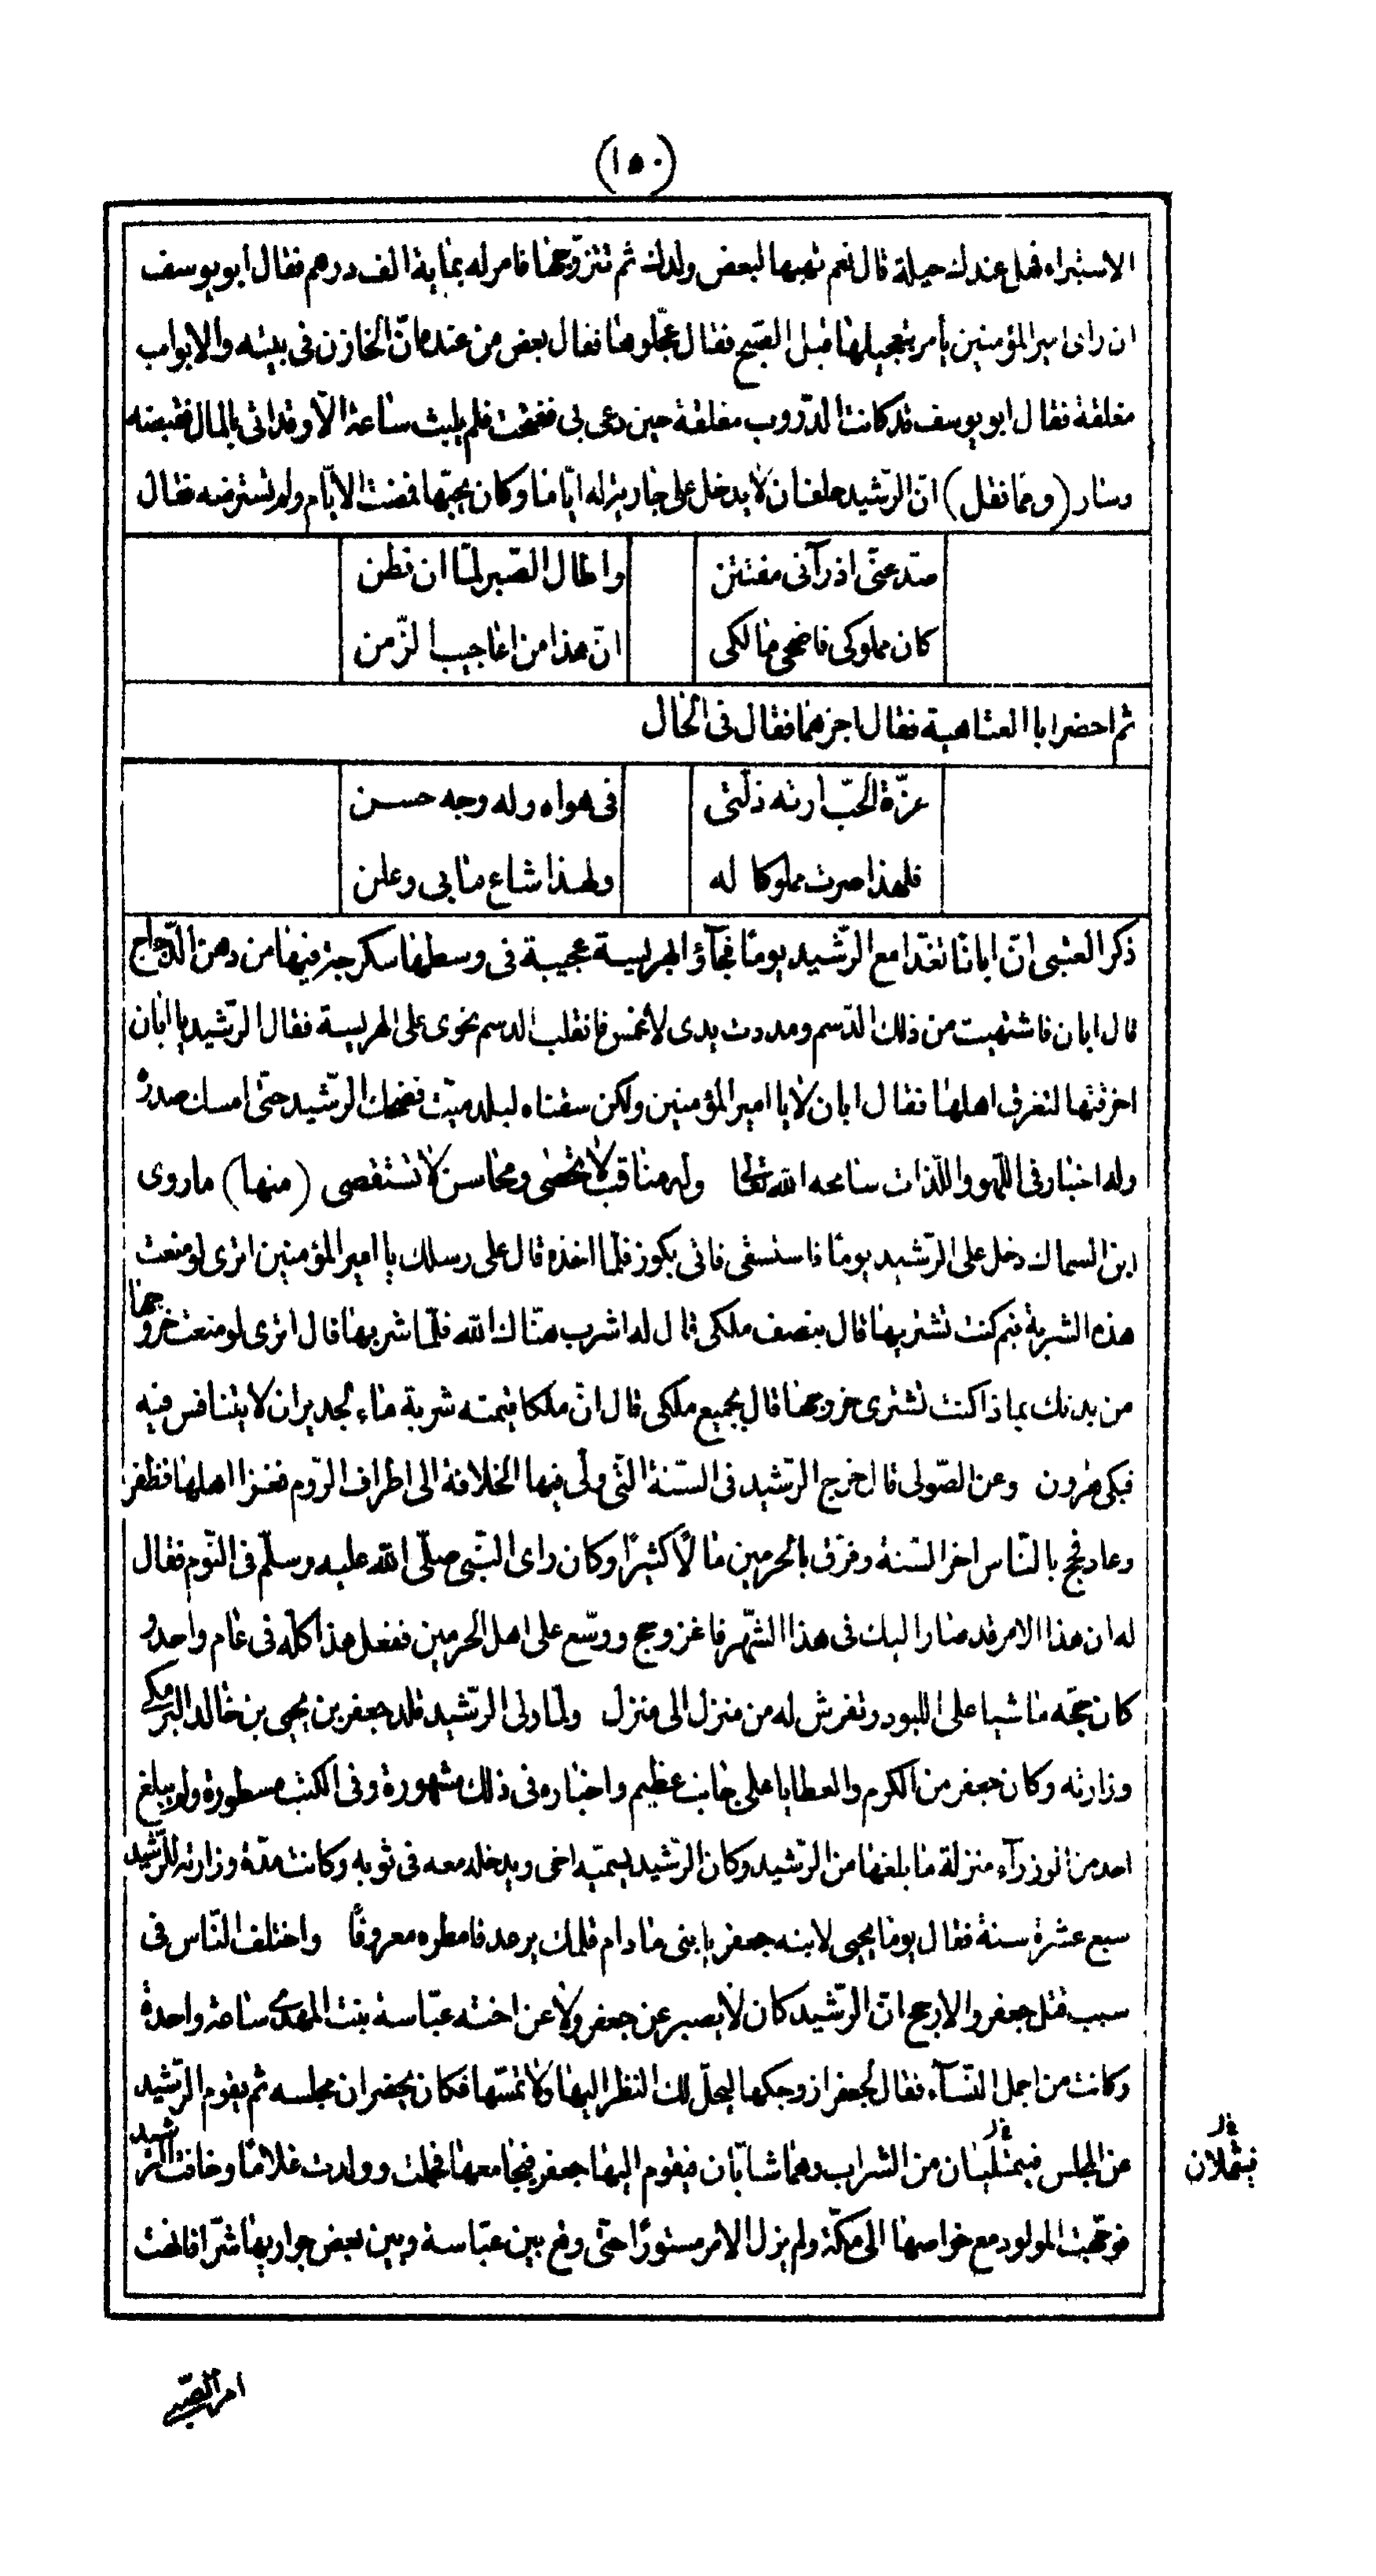 (١٥٠)
الاستبراء فهل عندك حيلة قال نعم تهبها لبعض ولدك ثم تتزوّجها فامر له بماية الف درهم فقال ابو يوسف
ان راى امير المؤمنين يأمر بتعجيلها قبل الصّبح فقال عجّلوها فقال بعض من عنده انّ الخازن فى بيته والابواب
مغلقة فقال ابو يوسف قد كانت الدّروب مغلقة حين دعى بى ففتحت فلم يلبث ساعة الّا وقد اتى بالمال فقبضه
وسار (وممّا نقل) انّ الرّشيد حلف ان لا يدخل على جارية له ايّاما وكان يحبّها فمضت الايّام ولم تسترضه فقال
صدّ عنّى اذ رآنى مفتتن واطال الصّبر لمّا ان فطن
كان مملوكى فاضحى مالكى انّ هذا من اعاجيب الزّمن
ثم احضر ابا العتاهية فقال اجزهما فقال فى الحال
عزّة الحبّ ارته ذلّتى فى هواه وله وجه حسن
فلهذا صرت مملوكا له ولهذا شاع ما بى وعلن
ذكر العتبى انّ ابانا تغدّا مع الرّشيد يوما فجآؤ الهريسة عجيبة فى وسطها سكرجة فيها من دهن الدّجاج
قال ابان فاشتهيت من ذلك الدّسم ومددت يدى لاغمس فانقلب الدسم نحوى على الهريسة فقال الرّشيد يا ابان
اخرقتها لتغرق اهلها فقال ابان لا يا امير المؤمنين ولكن سقناه لبلد ميّت فضحك الرّشيد حتّى امسك صدره
وله اخبار فى اللّهو واللّذات سامحه الله تعالى وله مناقب لا تحصى ومحاسن لا تستقصى (منها) ما روى
ابن السماك دخل على الرّشيد يوما فاستسقى فاتى بكوز فلمّا اخذه قال على رسلك يا امير المؤمنين اترى لو منعت
هذه الشربة فبم كنت تشتريها قال بنصف ملكى قال له اشرب هنّاك الله فلمّا شربها قال اترى لو منعت خروجها
من بدنك بماذا كنت تشترى خروجها قال بجميع ملكى قال انّ ملكا قيمته شربة ماء لجدير ان لا يتنافس فيه
فبكى هرون وعن الصّولى قال خرج الرّشيد فى السّنة الّتى ولّى فيها الخلافة الى اطراف الرّوم فغزا اهلها فظفر
وعاد فحج بالنّاس اخر السّنة وفرّق بالحرمين مالًا كثيرًا وكان راى النّبى صلّى الله عليه وسلّم فى النّوم فقال
له ان هذا الامر قد صار اليك فى هذا الشّهر فاغز وحج ووسّع على اهل الحرمين ففعل هذا كلّه فى عام واحد و
كان حجّه ماشيا على اللبود وتفرش له من منزل الى منزل ولمّا ولى الرّشيد قلد جعفر بن يحيى بن خالد البرمكى
وزارته وكان جعفر من الكرم والعطايا على جانب عظيم واخباره فى ذلك مشهورة وفى الكتب مسطورة ولم يبلغ
احد من الوزرآء منزلة ما بلغها من الرّشيد وكان الرّشيد يسمّيه اخى ويدخله معه فى ثوبه وكانت مدّة وزارته للرّشيد
سبع عشرة سنة فقال يوما يحيى لابنه جعفر يا بنى ما دام قلمك يرعد فامطره معروفًا واختلف النّاس فى
سبب قتل جعفر والارجح انّ الرّشيد كان لا يصبر عن جعفر ولا عن اخته عبّاسة بنت المهدى ساعة واحدة
وكانت من اجمل النّسآء فقال لجعفر ازوجكها ليحلّ لك النظر اليها ولا تمسّها فكان يحضران مجلسه ثم يقوم الرّشيد
عن المجلس فيمتليان من الشراب وهما شابّان فيقوم اليها جعفر فيجامعها فحملت وولدت غلامًا وخافت الرّشيد
فيثملان
فوجّهت المولود مع خواصها الى مكّة ولم يزل الامر مستورًا حتّى وقع بين عبّاسة وبين بعض جواريها شرّ فانهت
امر الصّبى